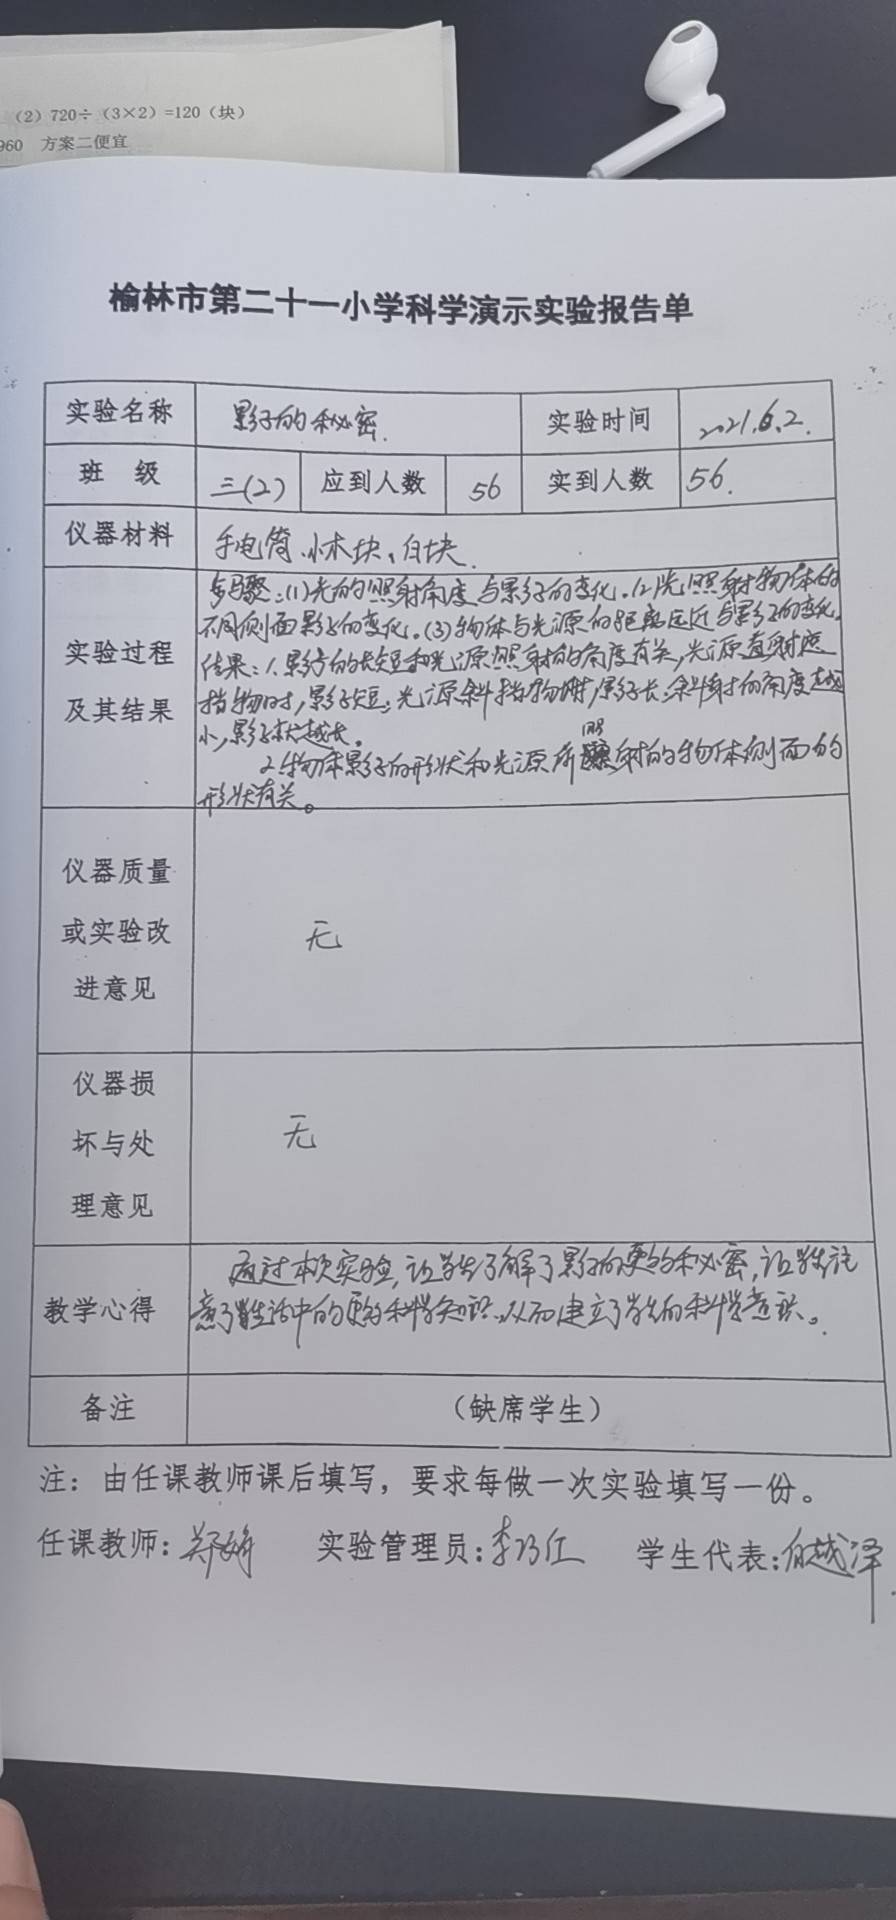 (2) 720÷(3×2)=120(块)
960 方案二便宜
榆林市第二十一小学科学演示实验报告单
实验名称 影子的秘密. 实验时间 2021.6.2.
班 级 三(2) 应到人数 56 实到人数 56.
仪器材料 手电筒、小木块、白块.
实验过程
及其结果
步骤:(1)光的照射角度与影子的变化.(2)光照射物体的
不同侧面影子的变化.(3)物体与光源的距离远近与影子的变化.
结果:1.影子的长短和光源照射的角度有关,光源直射
指物时,影子短;光源斜指物时,影子长;斜射的角度越
小,影子就越长。
2.物体影子的形状和光源所照射的物体侧面的
形状有关。
仪器质量
或实验改
进意见
无
仪器损
坏与处
理意见
无
教学心得
通过本次实验,让学生了解了影子的更多的秘密,让学生注
意了生活中的更多科学知识.从而建立了学生的科学意识。
备注 (缺席学生)
注:由任课教师课后填写,要求每做一次实验填写一份。
任课教师:郑娇 实验管理员:李巧红 学生代表:白越泽